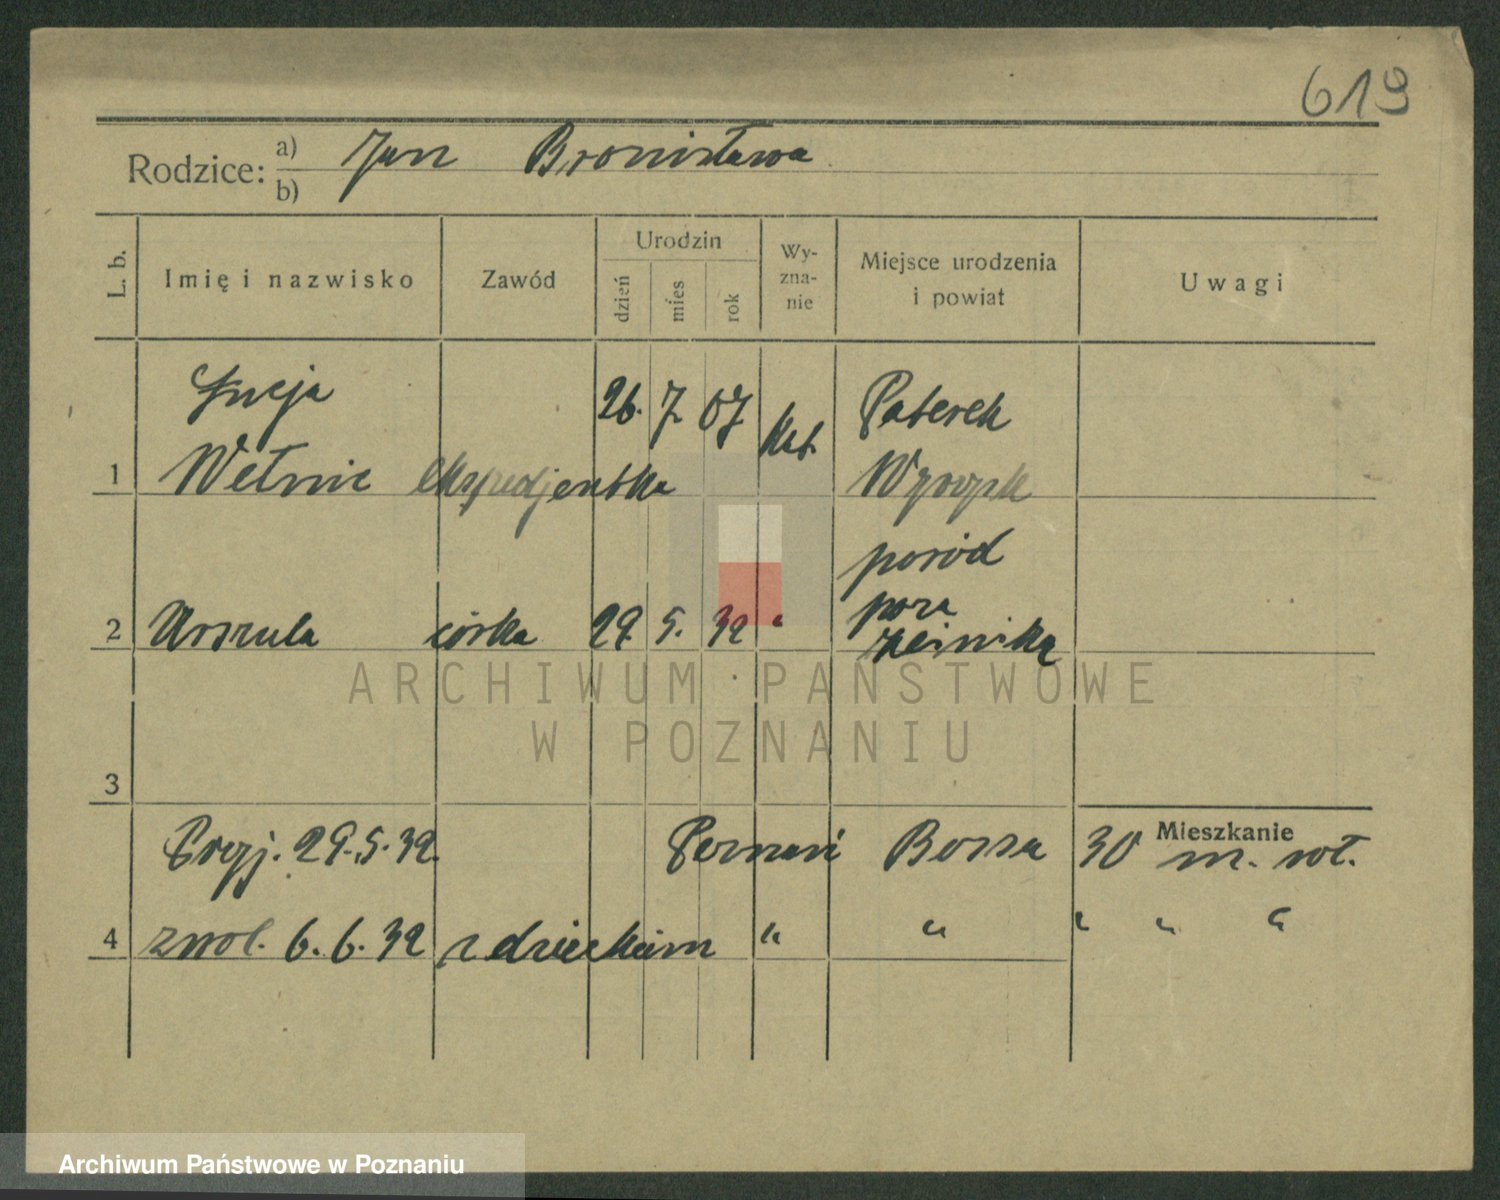 619
Rodzice: a) b) Jan Bronisława
L. b. Imię i nazwisko Zawód Urodzin dzień mies rok Wy-zna-nie Miejsce urodzenia i powiat Uwagi
Łucja 26. 7. 07 kat. Paterek
1 Wełnic ekspedjentka Wyrzysk
poród
poza
2 Urszula córka 29. 5. 32 " 
3
Mieszkanie
Przyj. 29.5.32. Poznań 30 m. wł.
4 zwol. 6.6.32 z dzieckiem " " " " "
ARCHIWUM PAŃSTWOWE
W POZNANIU
Archiwum Państwowe w Poznaniu